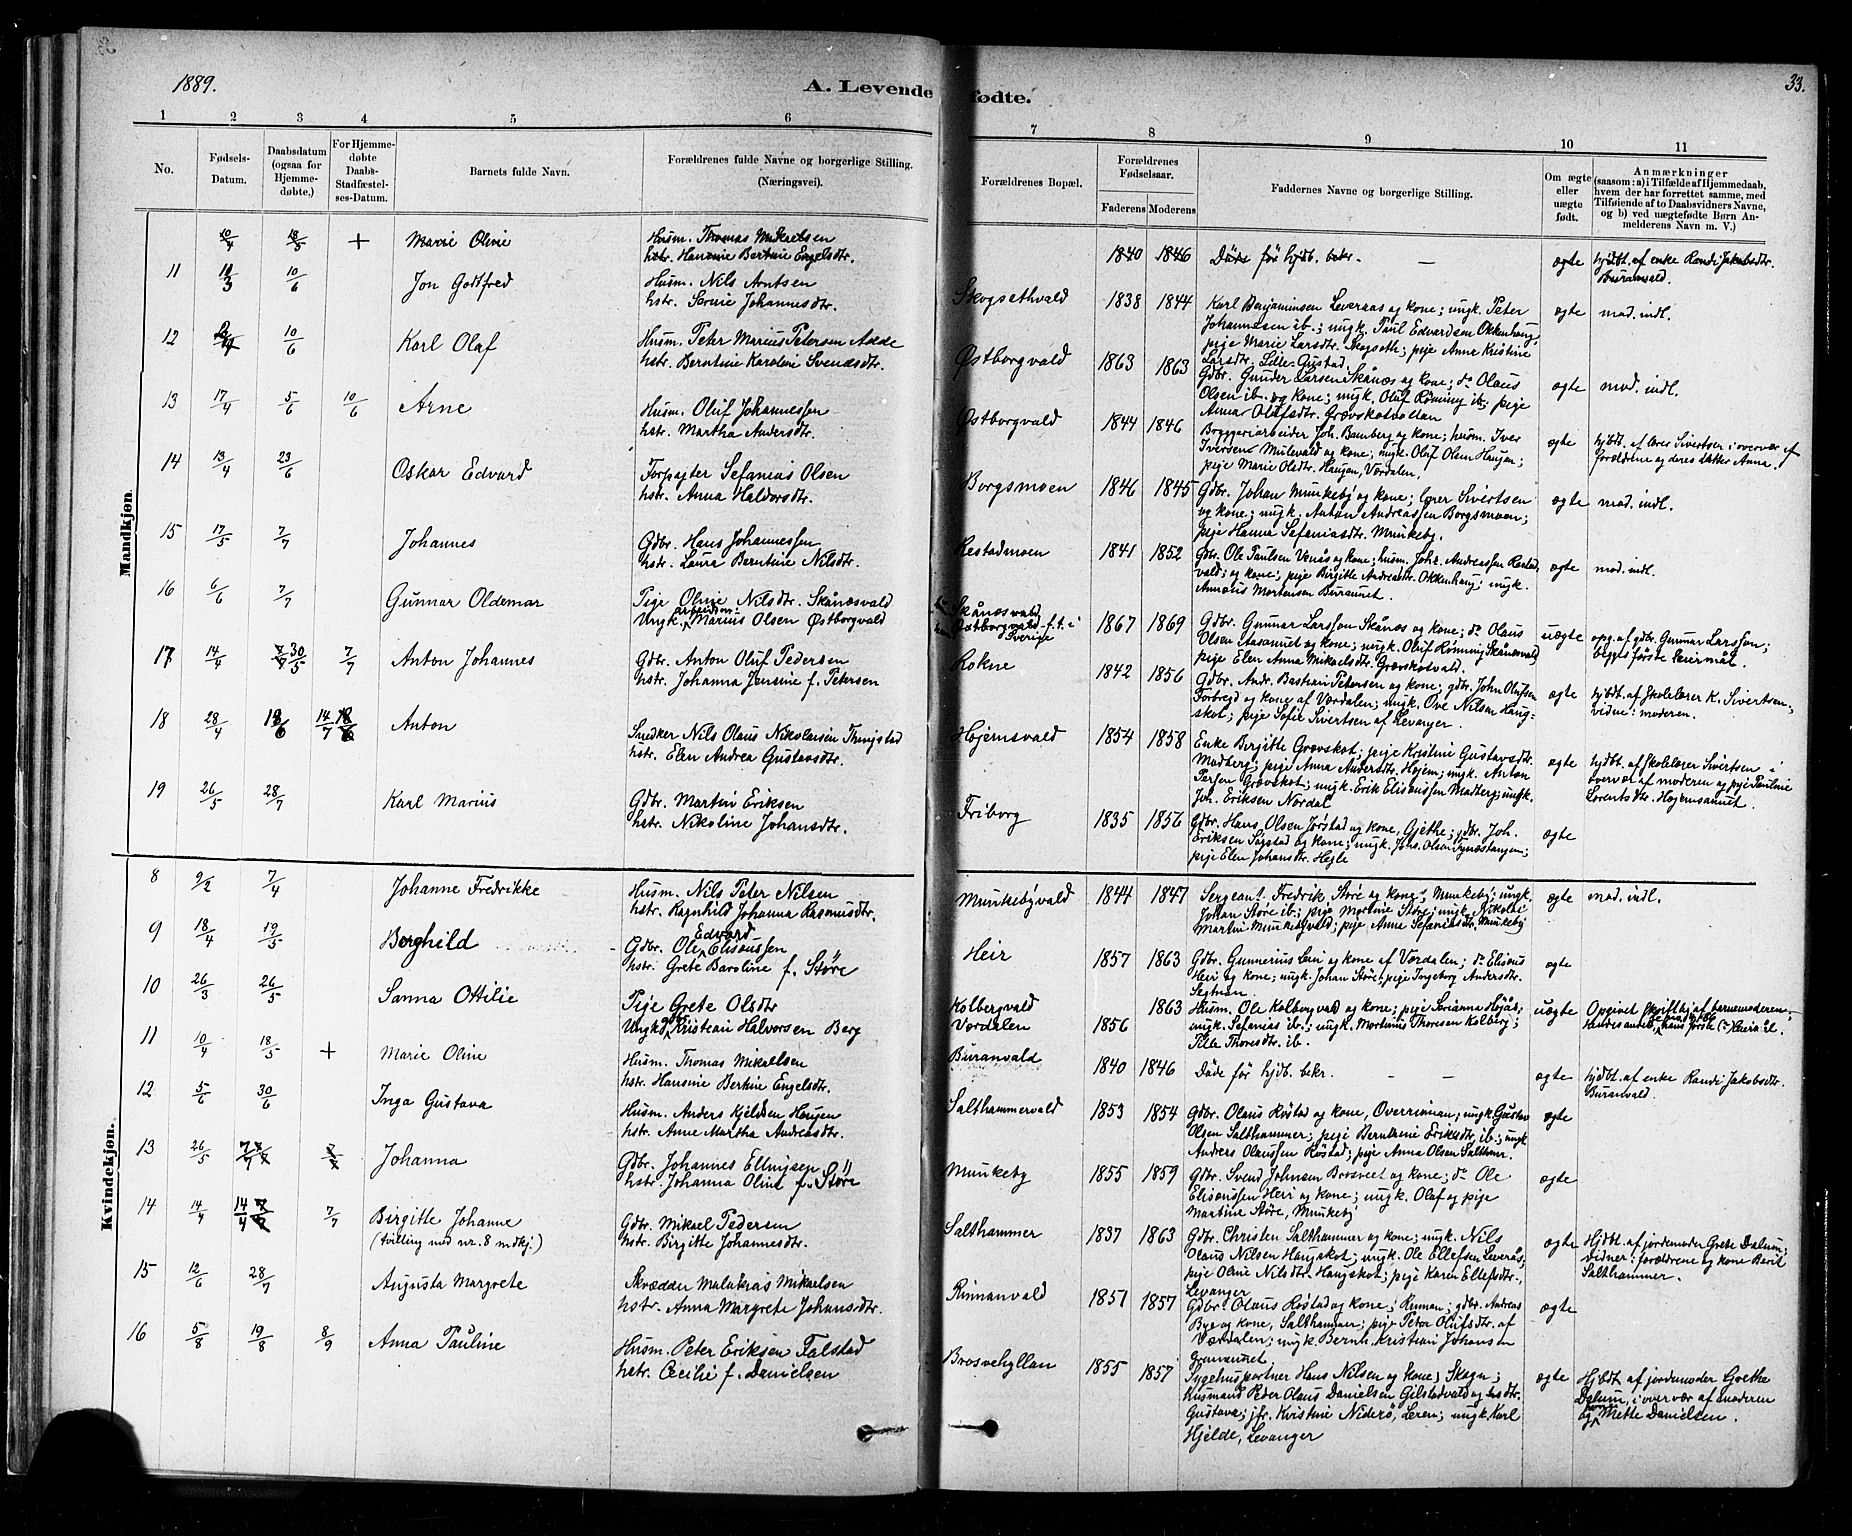 1889.
A. Levende fødte.
33.
1 2 3 4 5 6 7 8 9 10 11
No.
Fødsels-Datum.
Daabsdatum (ogsaa for Hjemmedøbte.)
For Hjemmedøbte Daabs-Stadfæstelses-Datum.
Barnets fulde Navn.
Forældrenes fulde Navne og borgerlige Stilling. (Næringsvei).
Forældrenes Bopæl.
Forældrenes Fødselsaar.
Faderens Moderens
Faddernes Navne og borgerlige Stilling.
Om ægte eller uægte født.
Anmærkninger (saasom: a) i Tilfælde af Hjemmedaab, hvem der har forrettet samme, med Tilføiende af to Daabsvidners Navne, og b) ved uægtefødte Børn Anmelderens Navn m. V.)
Mandkjøn.
10/4 18/5 + Marie Oline
Husm. Thomas Mikaelsen
hstr. Hansine Bertine Engelsdtr.
1840 1846 Døde før hjdb. bekr. — ægte
hjdbt. af enke Randi Jakobsdtr.
Buranvald.
11 10/3 10/6 Jon Gottfred
Husm. Nils Arntsen
hstr. Serine Johannesdtr.
Skogsethvald 1838 1844
Karl Benjaminsen Leveraas og kone; ungk. Peter
Johannesen ib.; ungk. Paul Edvardsen Okkenhaug;
pige Marie Larsdtr. Skogseth; pige Anne Kristine
Larsdtr. Lille-Gustad.
ægte mod. indl.
12 10/6 Karl Olaf
Husm. Peter Marius Petersen
hstr. Berntine Karoline Svendsdtr.
Østborgvald 1863 1863
Gdbr. Gunder Larsen Skånes og kone; do Olaus
Olsen ib. og kone; ungk. Oluf Rønning ib; pige
Anna Olufsdtr. Grævskotvollan
ægte mod. indl.
13 17/4 5/6 10/6 Arne
Husm. Oluf Johannessen
hstr. Martha Andersdtr.
Østborgvald 1844 1846
Bryggeriarbeider Joh. Bamberg og kone; husm. Iver
Iversen Mulevald og kone; ungk. Oluf Olsen Haugen;
pige Marie Olsdtr. Haugen, Værdalen.
ægte
hjbdt. af lærer Sivertsen i overvær af
forældrene og deres datter Anna.
14 13/4 23/6 Oskar Edvard
Forpagter Sefanias Olsen
hstr. Anna Haldorsdtr.
Borgsmoen 1846 1845
Gdbr. Johan Munkeby og kone; lærer Sivertsen
og kone; ungk. Anton Andreassen Borgsmoen;
pige Hanna Sefaniasdtr. Munkeby.
ægte mod. indl.
15 17/5 7/7 Johannes
Gdbr. Hans Johannessen
hstr. Laura Berntine Nilsdtr.
Restadmoen 1841 1852
Gdbr. Ole Paulsen Venås og kone; husm. Joh. Andreassen Restad
vald; og kone; pige Birgitte Andreasdtr. Okkenhaug; ungk.
Mortensen
ægte mod. indl.
16 6/6 7/7 Gunnar Oldemar
Pige Oline Nilsdtr. Skånesvald
Ungk. arbeidsm. Marius Olsen Østborgvald
Skånesvald
Østborgvald f. t. i Sverige
1867 1869
Gdbr. Gunnar Larsson Skånes og kone; do Olaus
Olsen Aasaunet og kone; ungk. Oluf Rønning Skånesvald
pige Elen Anna Mikaelsdtr. Grævskotvald.
uægte
opg. af gdbr. Gunnar Larsson;
begges første Leiermål.
17 14/4 30/5 7/7 Anton Johannes
Gdbr. Anton Oluf Pedersen
hstr. Johanna Jensine f. Petersen
Rokne 1842 1856
Gdbr. Andr. Bastian Petersen og kone; gdbr. John Olufsen
Forbregd og kone af Værdalen; ungk. Ove Nilsen Haug-
skot; pige Sofie Sivertsen af Levanger.
ægte
hjbdt. af Skolelærer K. Sivertsen,
vidne: moderen.
18 28/4 14/7 Anton
Snedker Nils Olaus Nikolaisen Thingstad
hstr. Elen Andrea Gustavsdtr.
Højemsvald 1854 1858
Enke Birgitte Grævskot; pige Kristine Gustavsdtr.
Madberg; pige Anna Andersdtr. Højem; ungk. Anton
Persen Grævskot; ungk. Erik Elisæussen Madberg; ungk.
Joh. Eriksen Nordal
ægte
hjbdt. af Skolelærer Sivertsen i
overvær af moderen og pige Pauline
Lorentsdtr. Højemsaunet.
19 26/5 28/7 Karl Marius
Gdbr. Martin Eriksen
hstr. Nikoline Johansdtr.
Friborg 1835 1856
Gdbr. Hans Olsen Jørstad og kone, Gjethe; gdbr. Joh.
Eriksen Søgstad og kone; ungk. Johs. Olsen Fynøstangen;
pige Elen Johansdtr. Hejle
ægte
Kvindekjøn.
8 9/2 7/4 Johanne Fredrikke
Husm. Nils Peter Nilsen
hstr. Ragnhild Johanna Rasmusdtr.
Munkebyvald 1844 1847
Sergeant. Fredrik Støre og kone, Munkeby; ungk.
Johan Støre ib.; pige Martine Støre; ungk. Nikolai
Martin Munkebyvald; pige Anne Sefaniasdtr. Munkeby
ægte mod. indl.
9 18/4 19/5 Borghild
Gdbr. Ole Edvard Elisæussen
hstr. Grete Baroline f. Støre
Heir 1857 1863
Gdbr. Gunnerius Lein og kone af Værdalen; do Elisæus
Heir og kone; ungk. Johan Støre; pige Ingeborg Andersdtr.
Segtnan
ægte
10 26/3 26/5 Sanna Ottilie
Pige Grete Olsdtr
Ungk. gdbr. Kristian Halvorsen Berg
Kolbergvald
Værdalen
1856 1863
Husm. Ole Kolbergvald og kone; pige Serianna Højås;
ungk. Sefanias ib.; ungk. Mortinus Thoresen Kolberg;
Pille Thoresdtr. ib.
uægte
Opgivet skriftlig af barnemoderen;
hans første (?) leiermål.
11 10/4 18/5 + Marie Oline
Husm. Thomas Mikaelsen
hstr. Hansine Bertine Engelsdtr.
Buranvald 1840 1846
Døde før hjdb. bekr. — — ægte
hjdbt. af enke Randi Jakobsdtr.
Buranvald.
12 5/6 30/6 Inga Gustava
Husm. Anders Kjeldsen Haugen
hstr. Anne Martha Andreasdtr.
Salthammervald 1853 1854
Gdbr. Olaus Røstad og kone, Overrinnan; ungk. Gustav
Olsen Salthammer; pige Berntine Eriksdtr. ib.; ungk.
Anders Olaussen Røstad; pige Anna Olsen Salthamr.
ægte
13 26/5 7/7 Johanna
Gdbr. Johannes Ellingsen
hstr. Johanna Oline f. Støre
Munkeby 1855 1859
Gdbr. Svend Johnsen Brosveet og kone; do Ole
Elisæussen Heir og kone; ungk. Olaf og pige
Martine Støre, Munkeby
ægte
14 14/4 14/4 7/7 Birgitte Johanne
(tvilling med nr. 8 mdkj.)
Gdbr. Mikael Pedersen
hstr. Birgitte Johannesdtr.
Salthammer 1837 1863
Gdbr. Christen Salthammer og kone; ungk. Nils
Olaus Nilsen Haugskot; ungk. Ole Ellefsen Leverås,
pige Oline Nilsdtr. Haugskot; pige Karen Ellefsdtr.,
Levanger
ægte
Hjdbt. af jordemoder Grete Dalum,
vidner: forældrene og kone Beret
Salthammer.
15 12/6 28/7 Augusta Margrete
Skrædder Malakias Mikaelsen
hstr. Anna Margrete Johansdtr.
Rinnanvald 1851 1857
Gdbr. Olaus Røstad og kone, Rinnan; gdbr. Andreas
Bye og kone, Salthammer; pige Petra Olufsdtr. af
Værdalen; ungk. Bernh. Kristian Johansen
Grenaunet.
ægte
16 5/8 19/8 8/9 Anna Pauline
Husm. Peter Eriksen Falstad
hstr. Cecilie f. Danielsen
Brosvehyllan 1855 1857
Sygehusportner Hans Nilsen og kone, Skogn;
Husmand Peder Olaus Danielsen Gilstadvald og hstr.
Gustava; jfr. Kristine Niderø, Leren; ungk. Karl
Hjelde, Levanger
ægte
Hjbdt. af jordemoder Grethe
Dalum, i overvær af moderen
og konen Mette Danielsen.